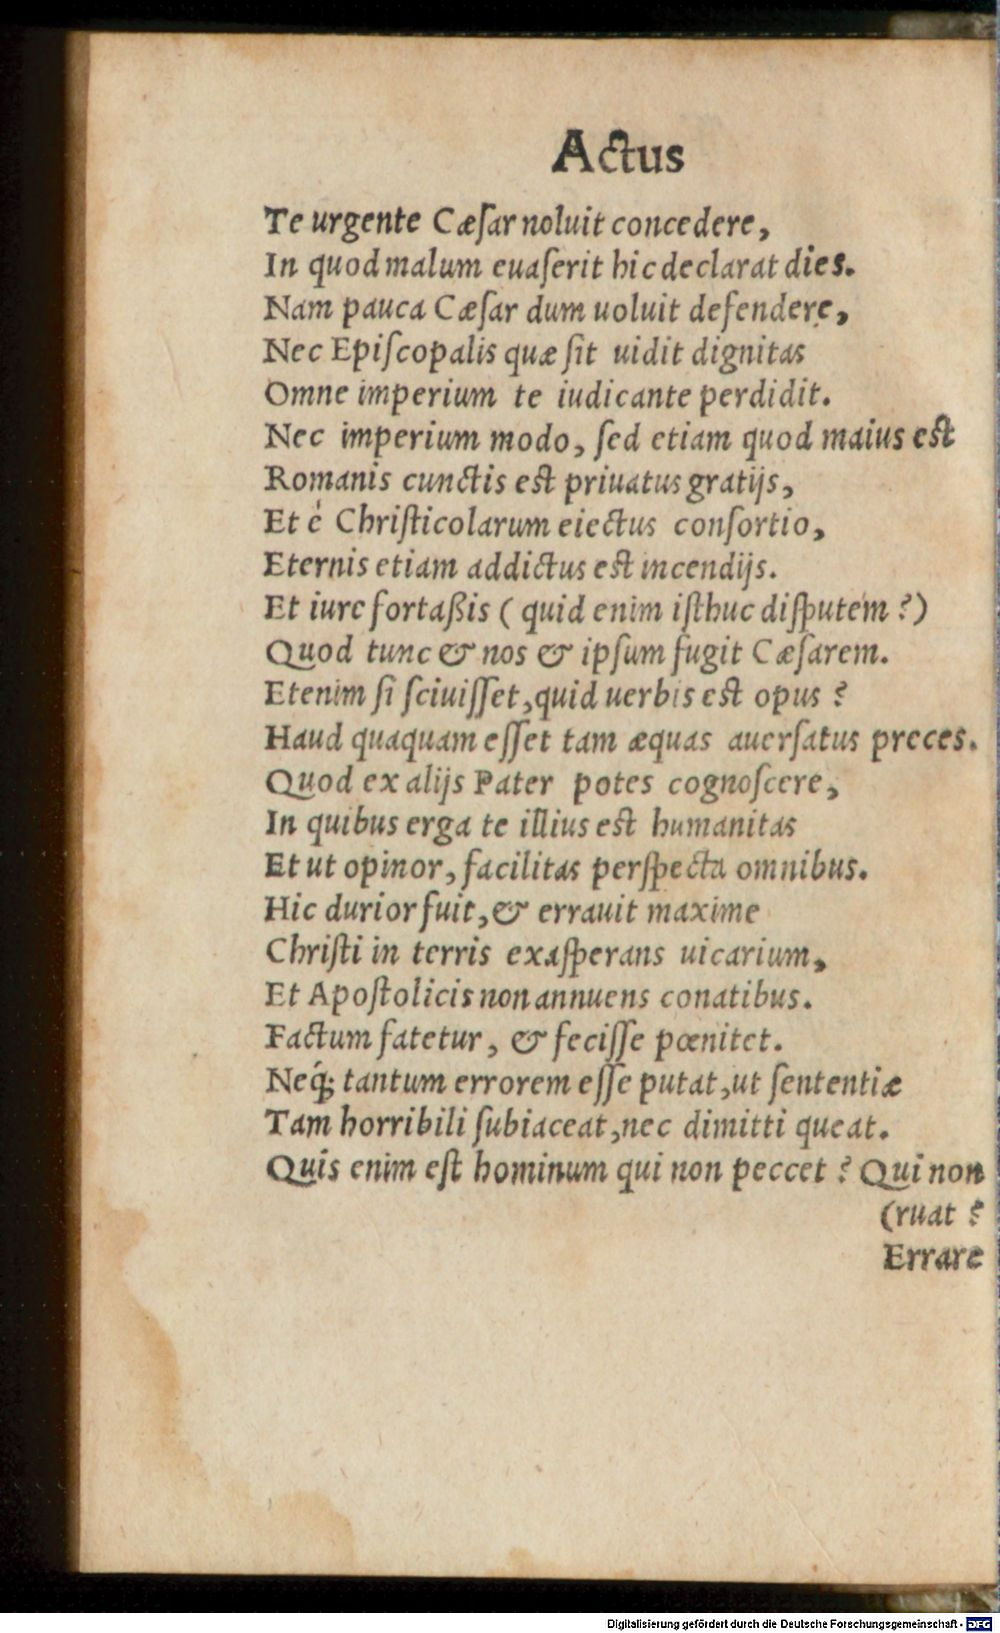 Actus
Te urgente Cæſar noluit concedere,
In quod malum euaſerit hic declarat dies.
Nam pauca Cæſar dum uoluit defendere,
Nec Epiſcopalis quæ ſit uidit dignitas
Omne imperium te iudicante perdidit.
Nec imperium modo, ſed etiam quod maius est
Romanis cunctis est priuatus gratijs,
Et è Chriſticolarum eiectus conſortio,
Eternis etiam addictus est incendijs.
Et iure fortaßis ( quid enim iſthuc diſputem ? )
Quod tunc & nos & ipſum fugit Cæſarem.
Etenim ſi ſciuiſſet, quid uerbis est opus ?
Haud quaquam eſſet tam æquas auerſatus preces.
Quod ex alijs Pater potes cognoſcere,
In quibus erga te illius est humanitas
Et ut opinor, facilitas perſpecta omnibus.
Hic durior fuit, & errauit maxime
Chriſti in terris exaſperans uicarium,
Et Apoſtolicis non annuens conatibus.
Factum fatetur, & feciſſe pœnitet.
Neq́; tantum errorem eſſe putat, ut ſententiæ
Tam horribili ſubiaceat, nec dimitti queat.
Quis enim eſt hominum qui non peccet ? Qui non
(ruat ?
Errare
Digitalisierung gefördert durch die Deutsche Forschungsgemeinschaft - DFG